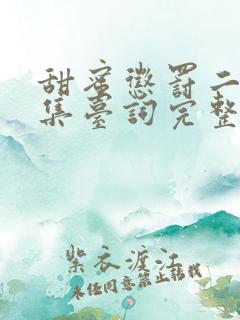 甜蜜懲罰二
集臺詞完整
紫衣渡江
未经同意禁止转载